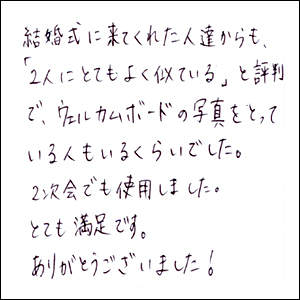 結婚式に来てくれた人達からも、
「2人にとてもよく似ている」と評判
で、ウェルカムボードの写真をとって
いる人もいるくらいでした。
2次会でも使用しました。
とても満足です。
ありがとうございました!